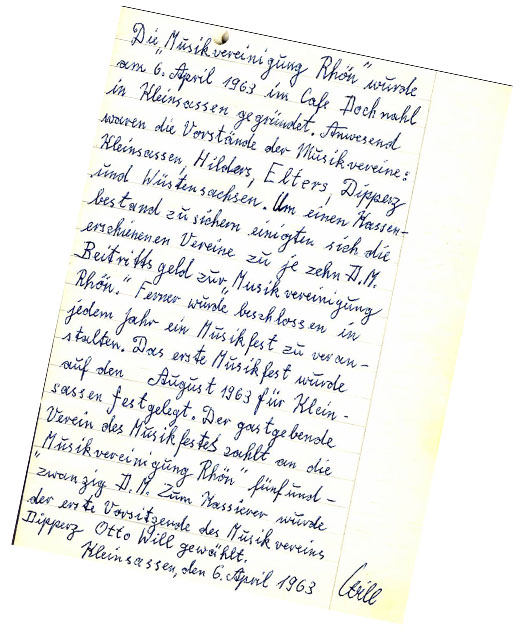 Die „Musikvereinigung Rhön“ wurde
am 6. April 1963 im Cafe Dochnahl
in Kleinsassen gegründet. Anwesend
waren die Vorstände der Musikvereine:
Kleinsassen, Hilders, Elters, Dipperz
und Wüstensachsen. Um einen Kassen-
bestand zu sichern einigten sich die
erschienenen Vereine zu je zehn D.M.
Beitrittsgeld zur „Musikvereinigung
Rhön.“ Ferner wurde beschlossen in
jedem Jahr ein Musikfest zu veran-
stalten. Das erste Musikfest wurde
auf den August 1963 für Klein-
sassen festgelegt. Der gastgebende
Verein des Musikfestes zahlt an die
„Musikvereinigung Rhön“ fünfund-
zwanzig D.M. Zum Kassierer wurde
der erste Vorsitzende des Musikvereins
Dipperz Otto Will gewählt.
Kleinsassen, den 6. April 1963
Will